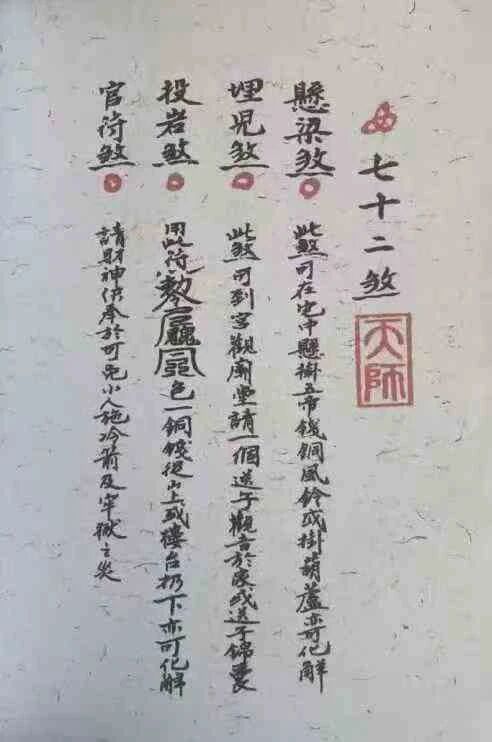 七十二煞
天師
懸梁煞
此煞可在宅中懸掛五帝錢銅風鈴或掛葫蘆亦可化解
埋児煞
此煞可到宮觀廟堂請一個送子觀音於家或送子錦囊
投岩煞
用此符 色一銅錢從山上或樓台扔下亦可化解
官符煞
請財神供奉於可免小人施冷箭及牢獄之災